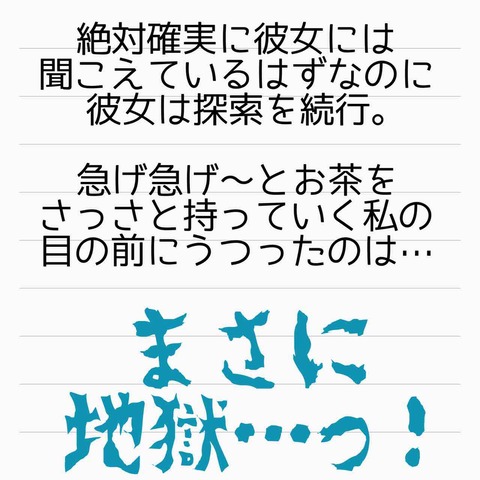 絶対確実に彼女には
聞こえているはずなのに
彼女は探索を続行。
急げ急げ～とお茶を
さっさと持っていく私の
目の前にうつったのは…
まさに
地獄…っ！